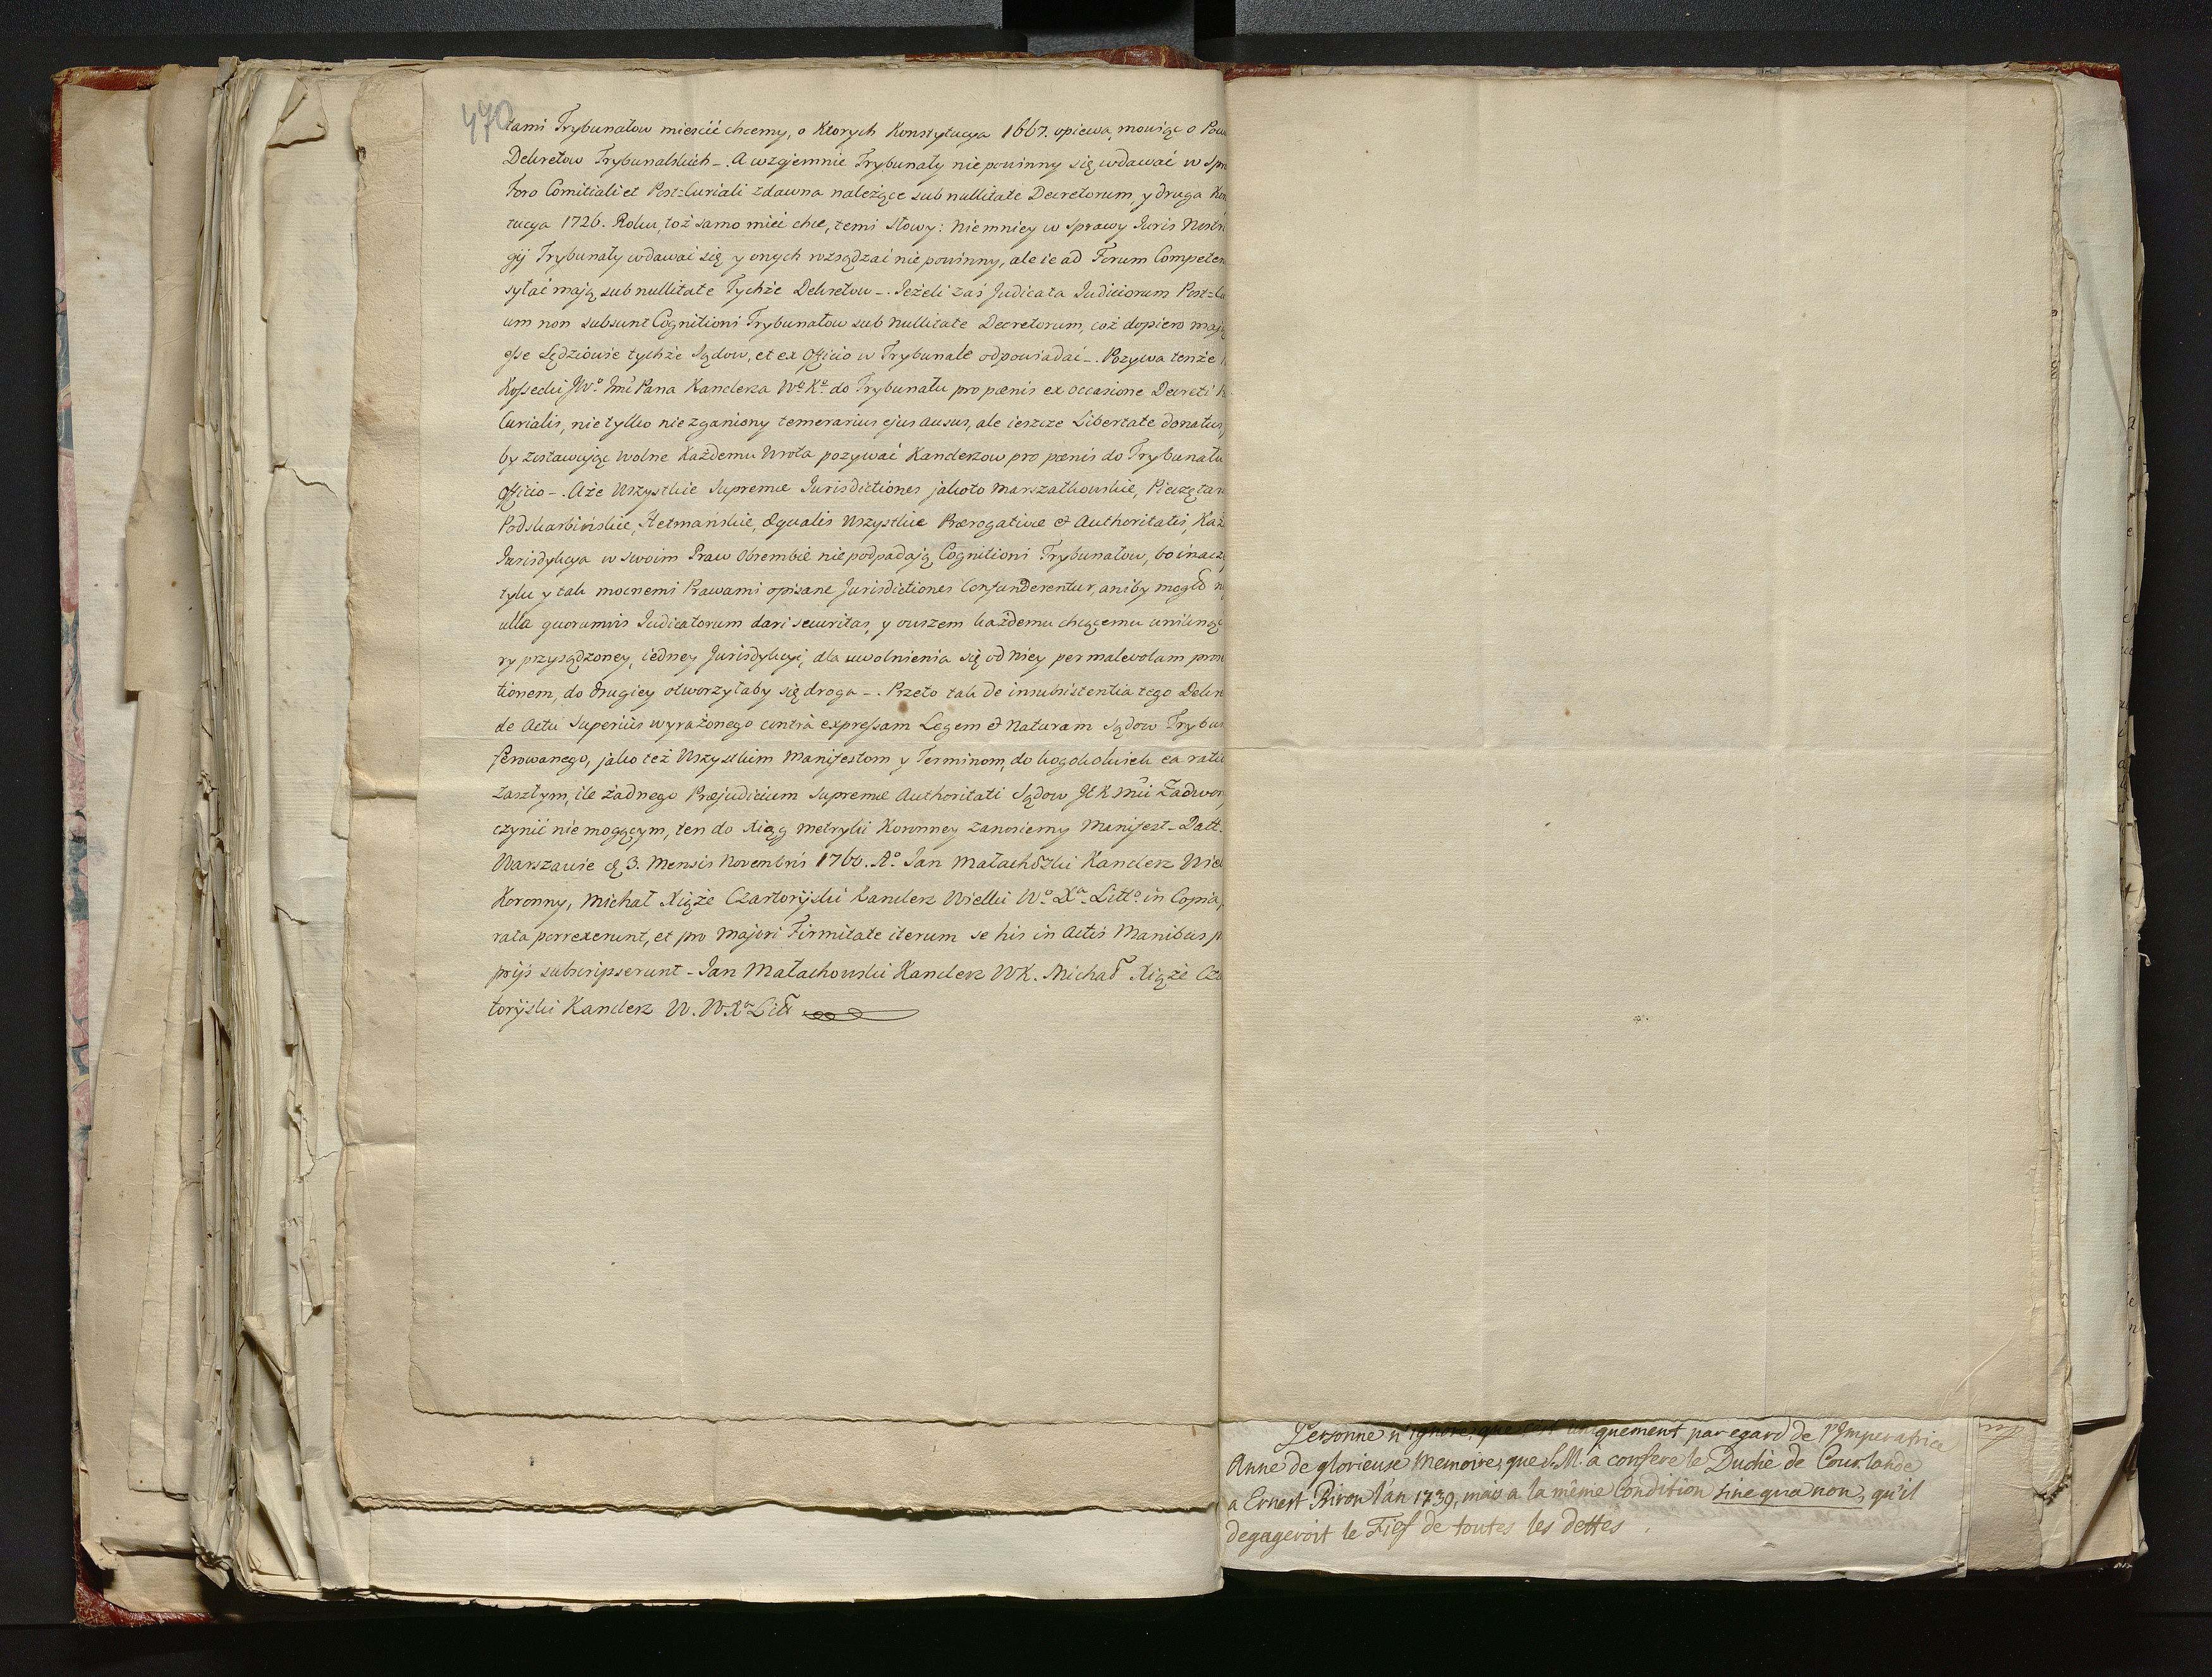 470
tami Trybunałow mieścić chcemy, o Ktorych Konstytucya 1667. opiewa, mowiąc o Pow
Dekretow Trybunalskich -. A wzajemnie Trybunały nie powinny się wdawać w Spr
Foro Comitiali et Post=Curiali zdawna należące sub nullitate Decretorum, y druga Kon
tucya 1726. Roku, toż samo mieć chce, temi Słowy: Niemniey w Sprawy Juris
gij Trybunały wdawać się y onych rozsądzać nie powinny, ale ie ad Forum Competen
syłać mają sub nullitate Tychże Dekretow -. Jeżeli zaś Judicata Judiciorum Post=Cu
um non subsunt Cognitioni Trybunałow sub Nullitate Decretorum, coż dopiero mają
esse Sędziowie tychże Sądow, et ex Officio w Trybunale odpowiadać -. Pozywa tenże
Kossecki JWo. Pana Kanclerza Wo Ko do Trybunału pro pœnis ex occasione Decreti
Curialis, nie tylko nie zganiony temerarius ejus ausus, ale ieszcze Libertate donatus,
by zostawując wolne Każdemu Wrota pozywać Kanclerzow pro pœnis do Trybunału
Officio -. Aże Wszystkie Supremæ Jurisdictiones jakoto Marszałkowskie, Pieczętar
Podskarbińskie, Hetmańskie, æqualis Wszystkie Prærogativæ & Authoritatis, Każ
Jurisdykcya w swoim Praw Obrembie nie podpadają Cognitioni Trybunałow, bo inacze
tylu y tak mocnemi Prawami opisane Jurisdictiones Confunderentur, aniby mogła
ulla quorumvis Judicatorum dari securitas, y owszem każdemu chcącemu uniknąć
ry przysądzoney, iedney Jurisdykcyi, dla uwolnienia się od niey per malevolam prom
tionem, do drugiey otworzyłaby się droga -. Przeto tak de insubsistentia tego Dekr
de Actu Superiùs wyrażonego contrà expressam Legem & Naturam Sądow Trybun
ferowanego, jako też Wszystkim Manifestom y Terminom, do kogokolwiek ea rati
zaszłym, ile żadnego Præjudicium Supremæ Authoritati Sądow JK Mci Zadwor
czynić nie mogącym, ten do Xiąg Metryki Koronney zanosiemy Manifest - Datt.
Warszawie d. 3. Mensis Novembris 1760. Ao Jan Małachowski Kanclerz Wiel
Koronny, Michał Xiąże Czartoryiski Kanclerz Wielki Wo. Xa. Litto. in Copia,
rata porrexerunt, et pro majori Firmitate iterum se his in Actis Manibus p
prijs subscripserunt - Jan Małachowski Kanclerz WK. Michał Xiąże Cza
toryiski Kanclerz W. W.Xa Litt
Personne n'ignore, que c'est uniquement par egard de l'Imperatrice
Anne de glorieuse Memoire, que S.M. à conferé le Duché de Courlande
a Ernest Biron l'an 1739, mais a la même Condition sine qua non, qu'il
degageroit le Fief de toutes les dettes.